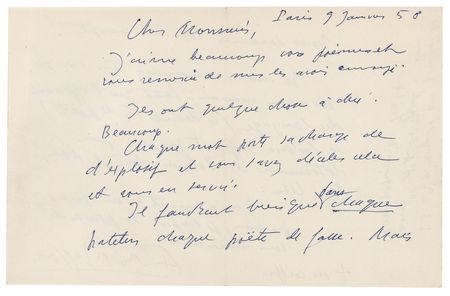 Paris 9 Janvier 58
Cher Monsieur,
J'aime beaucoup vos poèmes et
vous remercie de me les avoir envoyé.
Ils ont quelque chose à dire.
Beaucoup.
Chaque mot porte sa charge de
d'explosif et vous savez déceler cela
et vous en servir.
Il faudrait presque dans chaque
chaque poète de
Mais